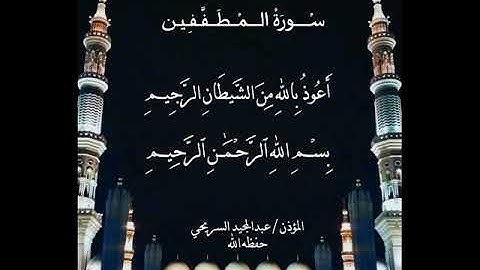 سورة المطففين
أَعُوذُ بِاللهِ مِنَ الشَّيْطَانِ الرَّجِيمِ
بِسْمِ اللهِ الرَّحْمَٰنِ الرَّحِيمِ
المؤذن / عبدالمجيد السريحي
حفظه الله